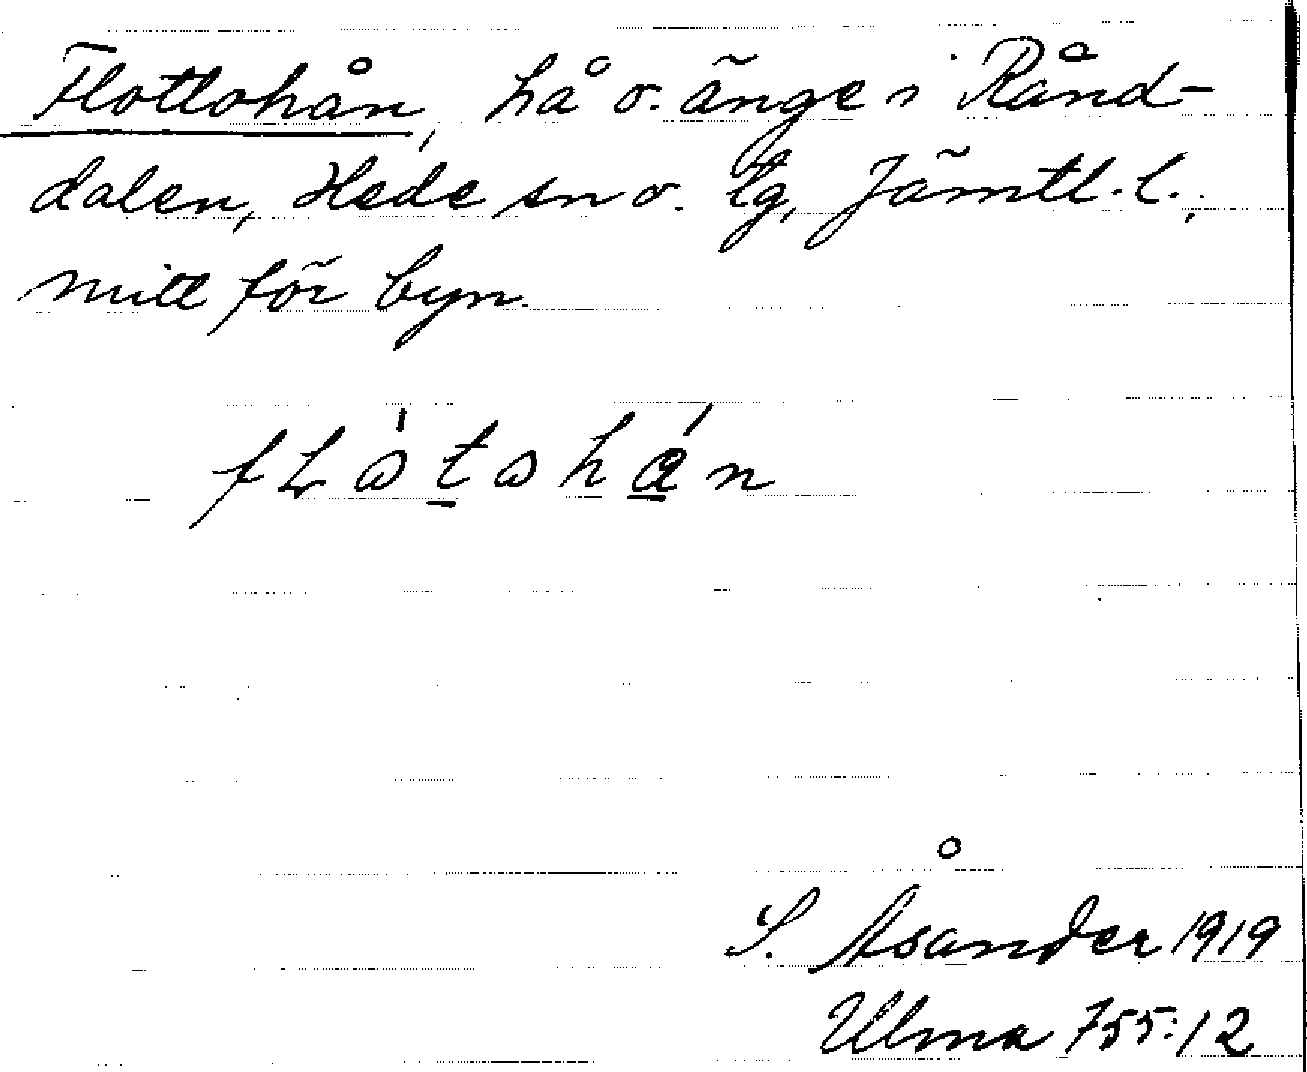 Flottohån, hå o. änge i Rånd-
dalen, Hede sn o. tg, Jämtl. l.,
mitt för byn.
fʟɷ̀t̠ɷhǻn
S. Åsander 1919
Ulma 755:12